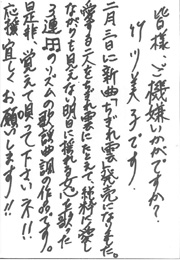 皆様、ご機嫌いかがですか?
竹川美子です。
二月三日に新曲「ちぎれ雲」発売になりました。
愛する人をちぎれ雲にたとえて純粋に愛し
ながらも見えない明日に揺れる女心を歌った
3連のリズムの歌謡曲調の作品です。
是非、覚えて唄って下さいネ!!
応援宜しくお願いします!!